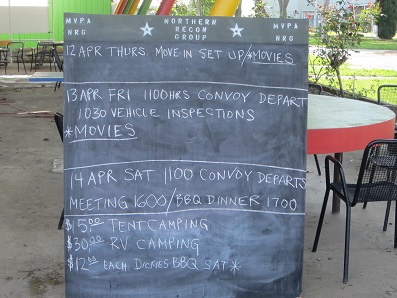 MVPA NORTHERN MVPA
NRG RECON NRG
GROUP
12 APR THURS. MOVE IN SET UP/*MOVIES
13 APR FRI 1100HRS CONVOY DEPART
1030 VEHICLE INSPECTIONS
*MOVIES
14 APR SAT 1100 CONVOY DEPARTS
MEETING 1600/BBQ DINNER 1700
$15.00 TENT CAMPING
$30.00 RV CAMPING
$12.00 EACH DICKIES BBQ SAT*